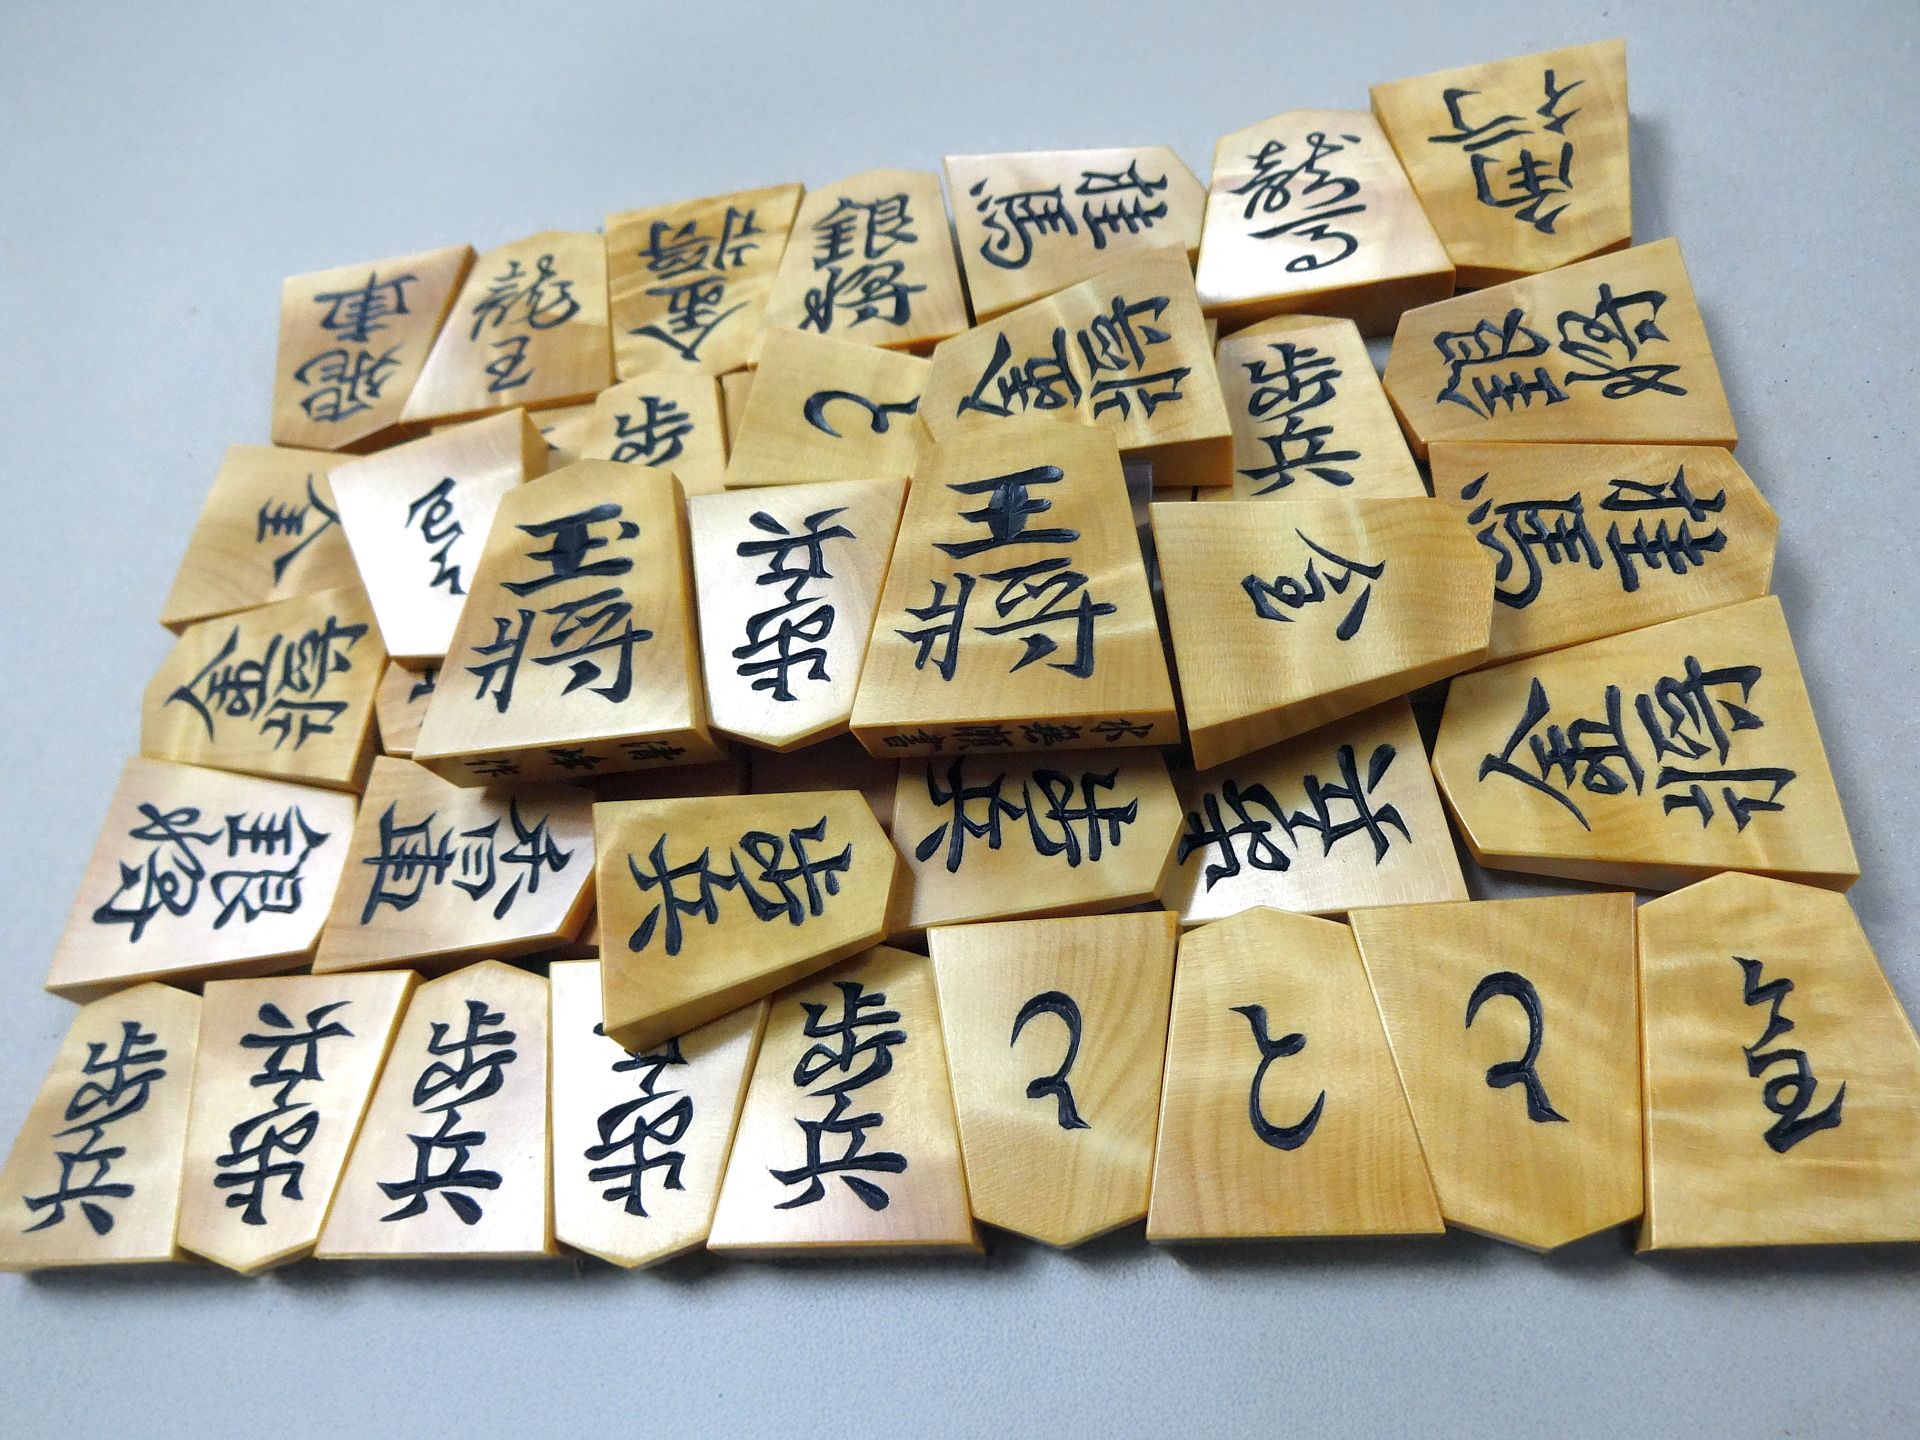 角行
龍馬
桂馬
銀将
金将
龍王
飛車
銀将
歩兵
金将
と
歩
桂馬
金
王将
歩兵
玉将
全
金将
水無瀬書
清安作
金将
歩兵
歩兵
歩兵
香車
銀将
歩兵
歩兵
歩兵
歩兵
と
と
と